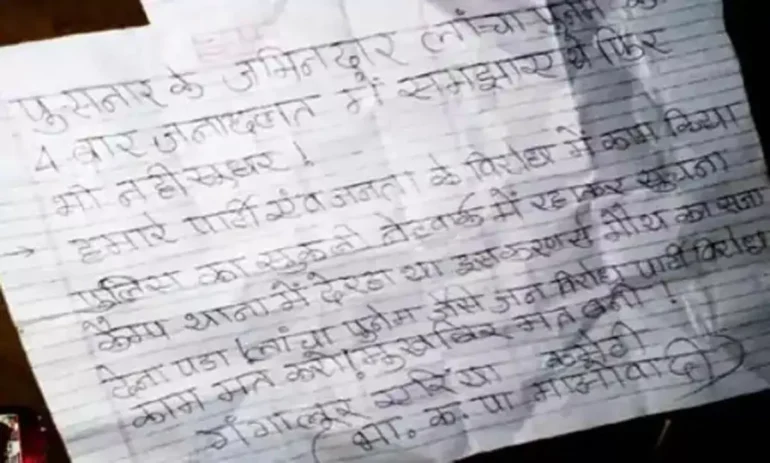 पुसनार के जमिनदार लांचा पुनेम को
4 बार जनादलत में समझाए थे फिर
भी नहीं सुधर!
→ हमारे पार्टी एंव जनता के विरोध में काम किया
पुलिस का नेटवर्क में रहाकर सुचना
कैम्प थाना में देरहा था इसकरण से मौथ का सजा
देना पडा। लांचा पुनेम जैसे जन विरोध पार्टी विरोध
काम मत करो! मुखबिर मत बनो!
गंगालुर एरिया कमेटी
(भा. क. पा माओवादी)